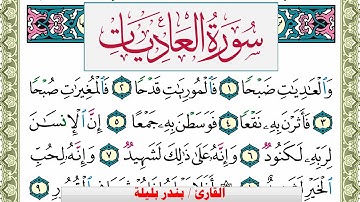 سُورَةُ الْعَادِيَاتِ
وَالْعَادِيَاتِ ضَبْحًا ١ فَالْمُورِيَاتِ قَدْحًا ٢ فَالْمُغِيرَاتِ صُبْحًا
٣ فَأَثَرْنَ بِهِ نَقْعًا ٤ فَوَسَطْنَ بِهِ جَمْعًا ٥ إِنَّ الْإِنسَانَ
لِرَبِّهِ لَكَنُودٌ ٦ وَإِنَّهُ عَلَى ذَلِكَ لَشَهِيدٌ ٧ وَإِنَّهُ لِحُبِّ
الْخَيْرِ لَشَدِيدٌ الْقُبُورِ ٩
القارئ / بندر بليلة